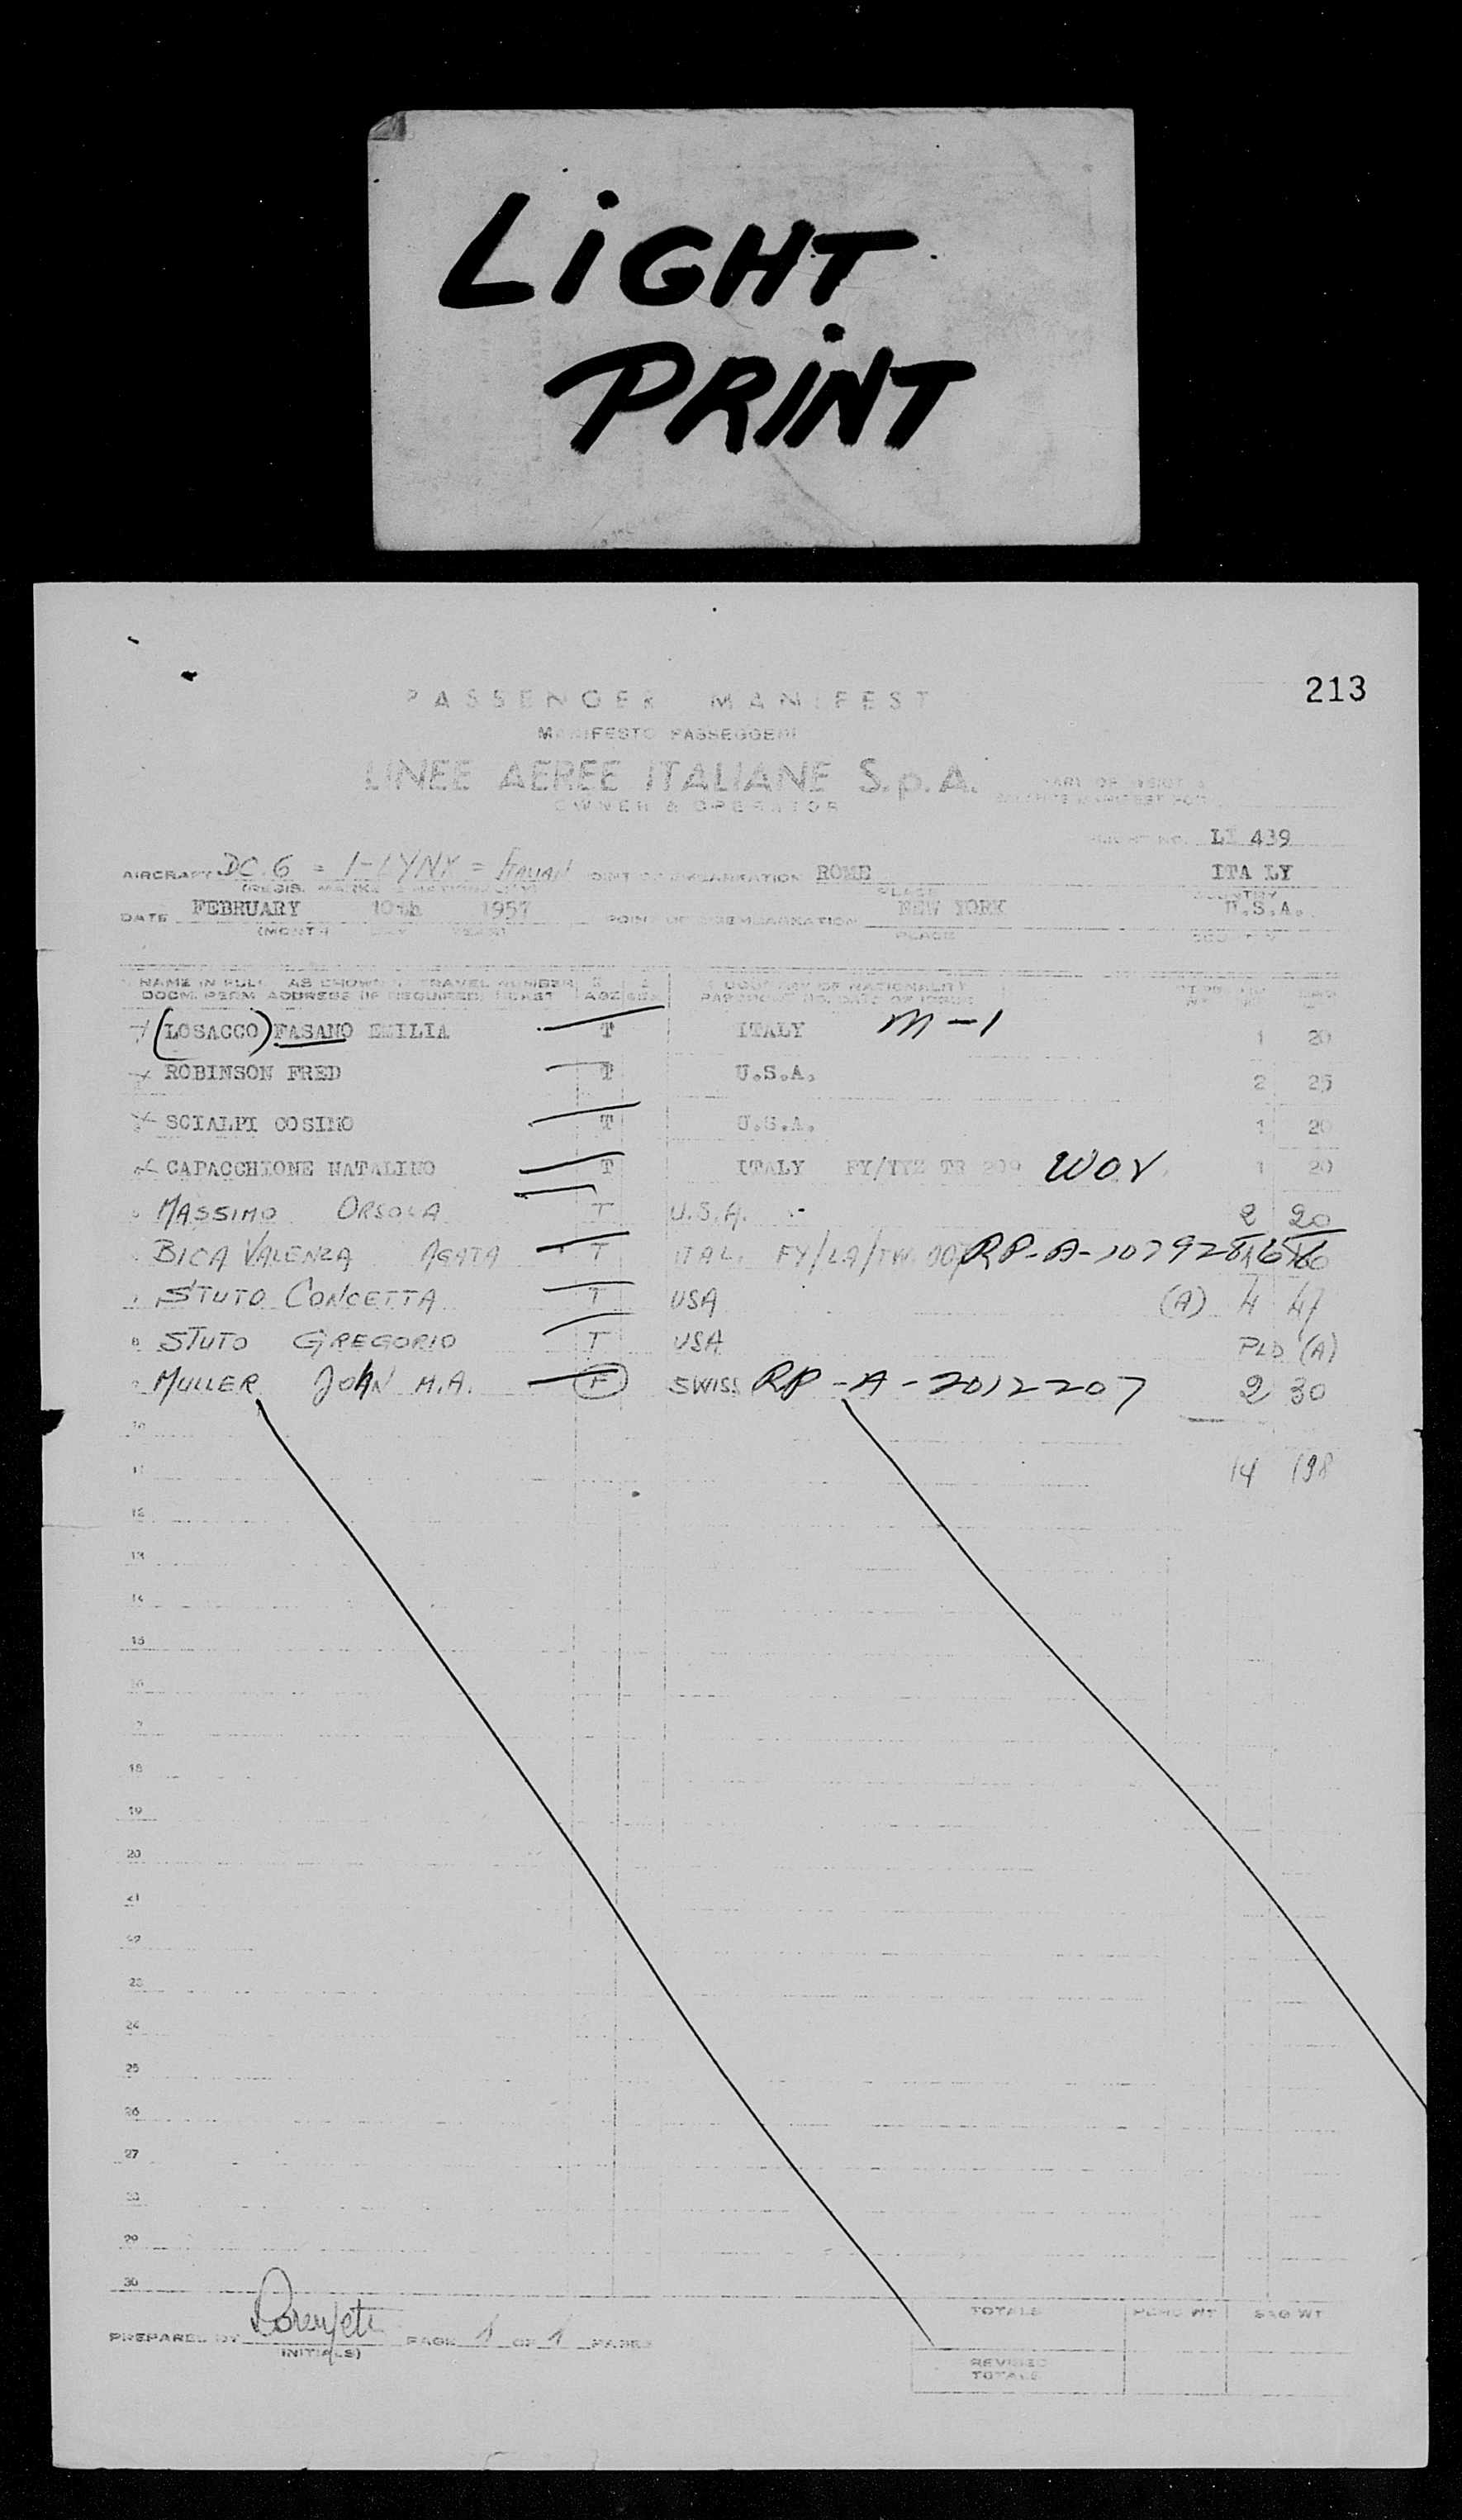 LiGHT
PRiNT
213
PASSENGER MANIFEST
MANIFESTO PASSEGGERI
LINEE AEREE ITALIANE S.p.A.
OWNER & OPERATOR
FLIGHT NO. LI 439
AIRCRAFT DC.6 = I-LYNX = ITALIAN POINT OF EMBARKATION ROME ITALY
(REGIS. MARKS & NATIONALITY) PLACE COUNTRY
DATE FEBRUARY 10th 1957 POINT OF DISEMBARKATION NEW YORK U.S.A.
(MONTH DAY YEAR) PLACE COUNTRY
NAME IN FULL AS SHOWN TRAVEL NUMBER COUNTRY OF NATIONALITY
DOCM. PERM ADDRESS (IF REQUIRED) TICKET AGE SEX PASSPORT NO. DATE OF ISSUE
(LOSACCO) FASANO EMILIA T ITALY M-1 1 20
ROBINSON FRED T U.S.A. 2 25
SCIALPI COSIMO T U.S.A. 1 20
CAPACCHIONE NATALINO T ITALY 209 WOV 1 20
MASSIMO ORSOLA T U.S.A. 2 20
BICA VALENZA AGATA T ITAL. RP-A-10792
STUTO CONCETTA T USA (A) 4 47
8 STUTO GREGORIO T USA PLD (A)
MULLER JOHN M.A. F SWISS RP-A-2012207 2 30
10
11 14 198
12
13
14
15
16
17
18
19
20
21
22
23
24
25
26
27
28
29
30
TOTALS PCHD WT BAG WT
PREPARED BY PAGE 1 OF 1 PAGES
(INITIALS)
REVISED
TOTALS